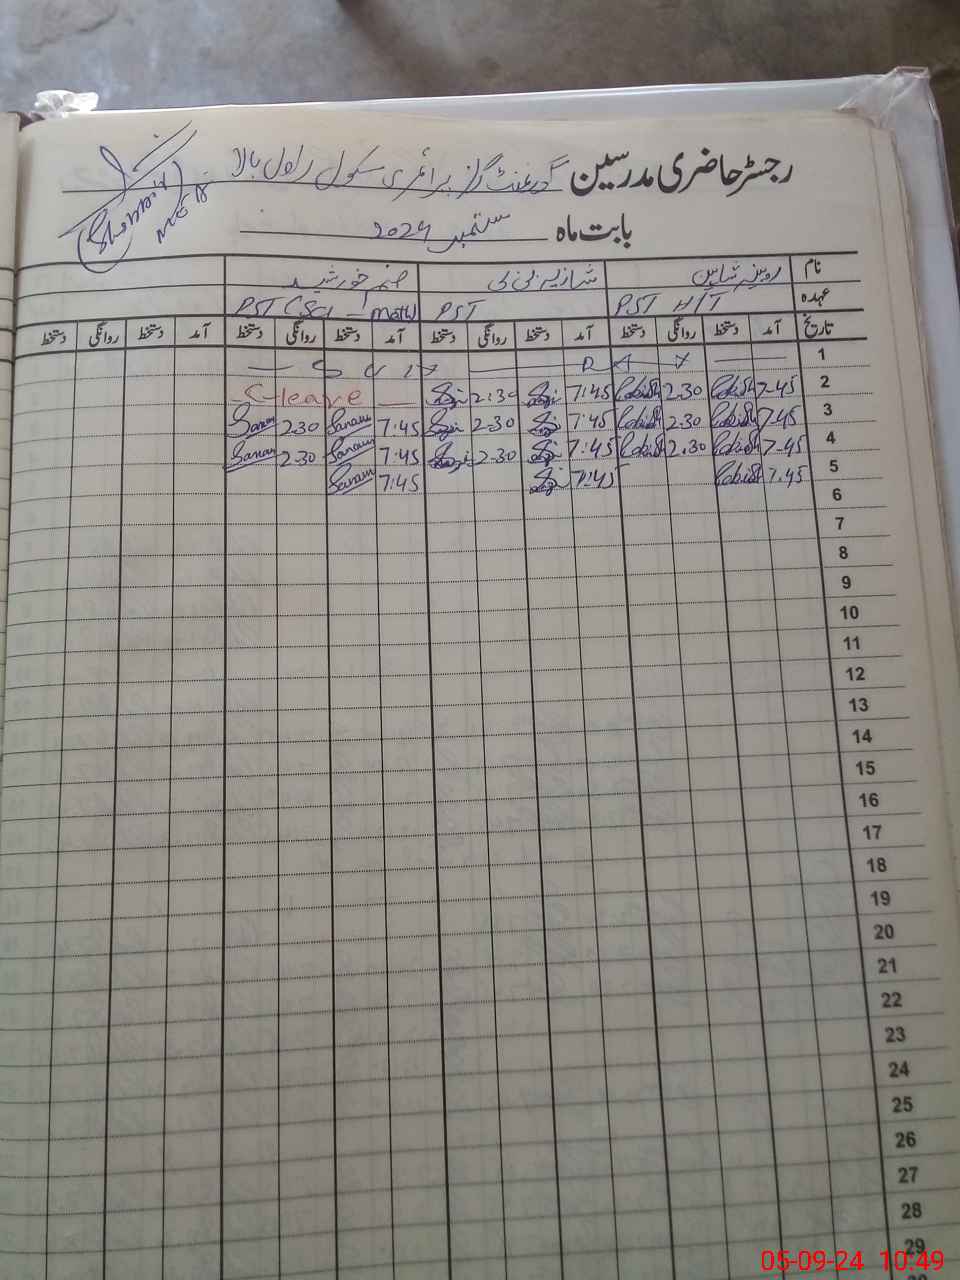 رجسٹر حاضری مدرسین گورنمنٹ گرلز پرائمری سکول راول بالا
بابت ماہ ستمبر 2024
نام روبینہ شاہین شازیہ بی بی صنم خورشید
عہدہ PST H/T PST PST (Sci - Math)
تاریخ آمد دستخط روانگی دستخط آمد دستخط روانگی دستخط آمد دستخط روانگی دستخط آمد دستخط روانگی دستخط
1 S U N D A Y
2 7-45 2.30 7:45 2:30 C-leave
3 7.45 2.30 7:45 2-30 7:45 Sanam 2.30 Sanam
4 7-45 2.30 7:45 2-30 7:45 Sanam 2-30 Sanam
5 7.45 7:45 7:45 Sanam
6
7
8
9
10
11
12
13
14
15
16
17
18
19
20
21
22
23
24
25
26
27
28
29
05-09-24 10:49